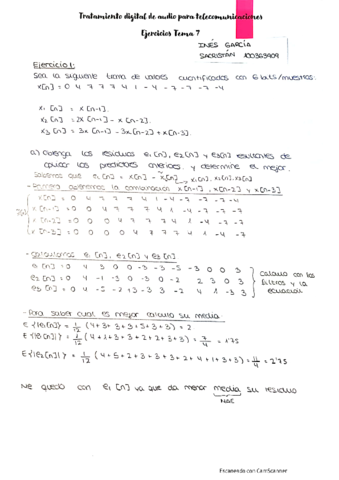 Tratamiento digital de audio para telecomunicaciones
Ejercicios Tema 7
INÉS GARCÍA
SACRISTÁN 100363909
Ejercicio 1:
Sea la siguiente trama de valores cuantificados con 6 bits/muestra:
x[n] = 0 4 7 7 7 4 1 -4 -7 -7 -7 -4
x₁ [n] = x [n-1].
x₂ [n] = 2x [n-1] - x [n-2].
x₃ [n] = 3x [n-1] - 3x [n-2] + x [n-3].
a) Obtenga los residuos e₁ [n], e₂ [n] y e₃ [n] de
los predictores anteriores y determine el mejor.
Sabemos que e[n] = x[n] - x̂[n] → x₁[n], x₂[n], x₃[n]
- Primero x[n-1], x[n-2] y x[n-3]
x [n] = 0 4 7 7 7 4 1 -4 -7 -7 -7 -4
x [n-1] = 0 0 4 7 7 7 4 1 -4 -7 -7 -7
x [n-2] = 0 0 0 4 7 7 7 4 1 -4 -7 -7
x [n-3] = 0 0 0 0 4 7 7 7 4 1 -4 -7
- Calculamos e₁ [n], e₂ [n] y e₃ [n]
e₁ [n] = 0 4 3 0 0 -3 -3 -5 -3 0 0 3
e₂ [n] = 0 4 -1 -3 0 -3 0 -2 2 3 0 3
e₃ [n] = 0 4 -5 -2 +3 -3 3 -2 4 1 -3 3
Calculo con los
filtros y la
ecuación
- Para saber cual es mejor calculo su media
E {|e₁ [n]|} = 1/12 (4+3+3+3+5+3+3) = 2
E {|e₂ [n]|} = 1/12 (4+1+3+3+2+2+3+3) = 7/4 = 1'75
E {|e₃ [n]|} = 1/12 (4+5+2+3+3+3+2+4+1+3+3) = 11/4 = 2'75
Me quedo con e₁ [n] ya que da menor media su residuo